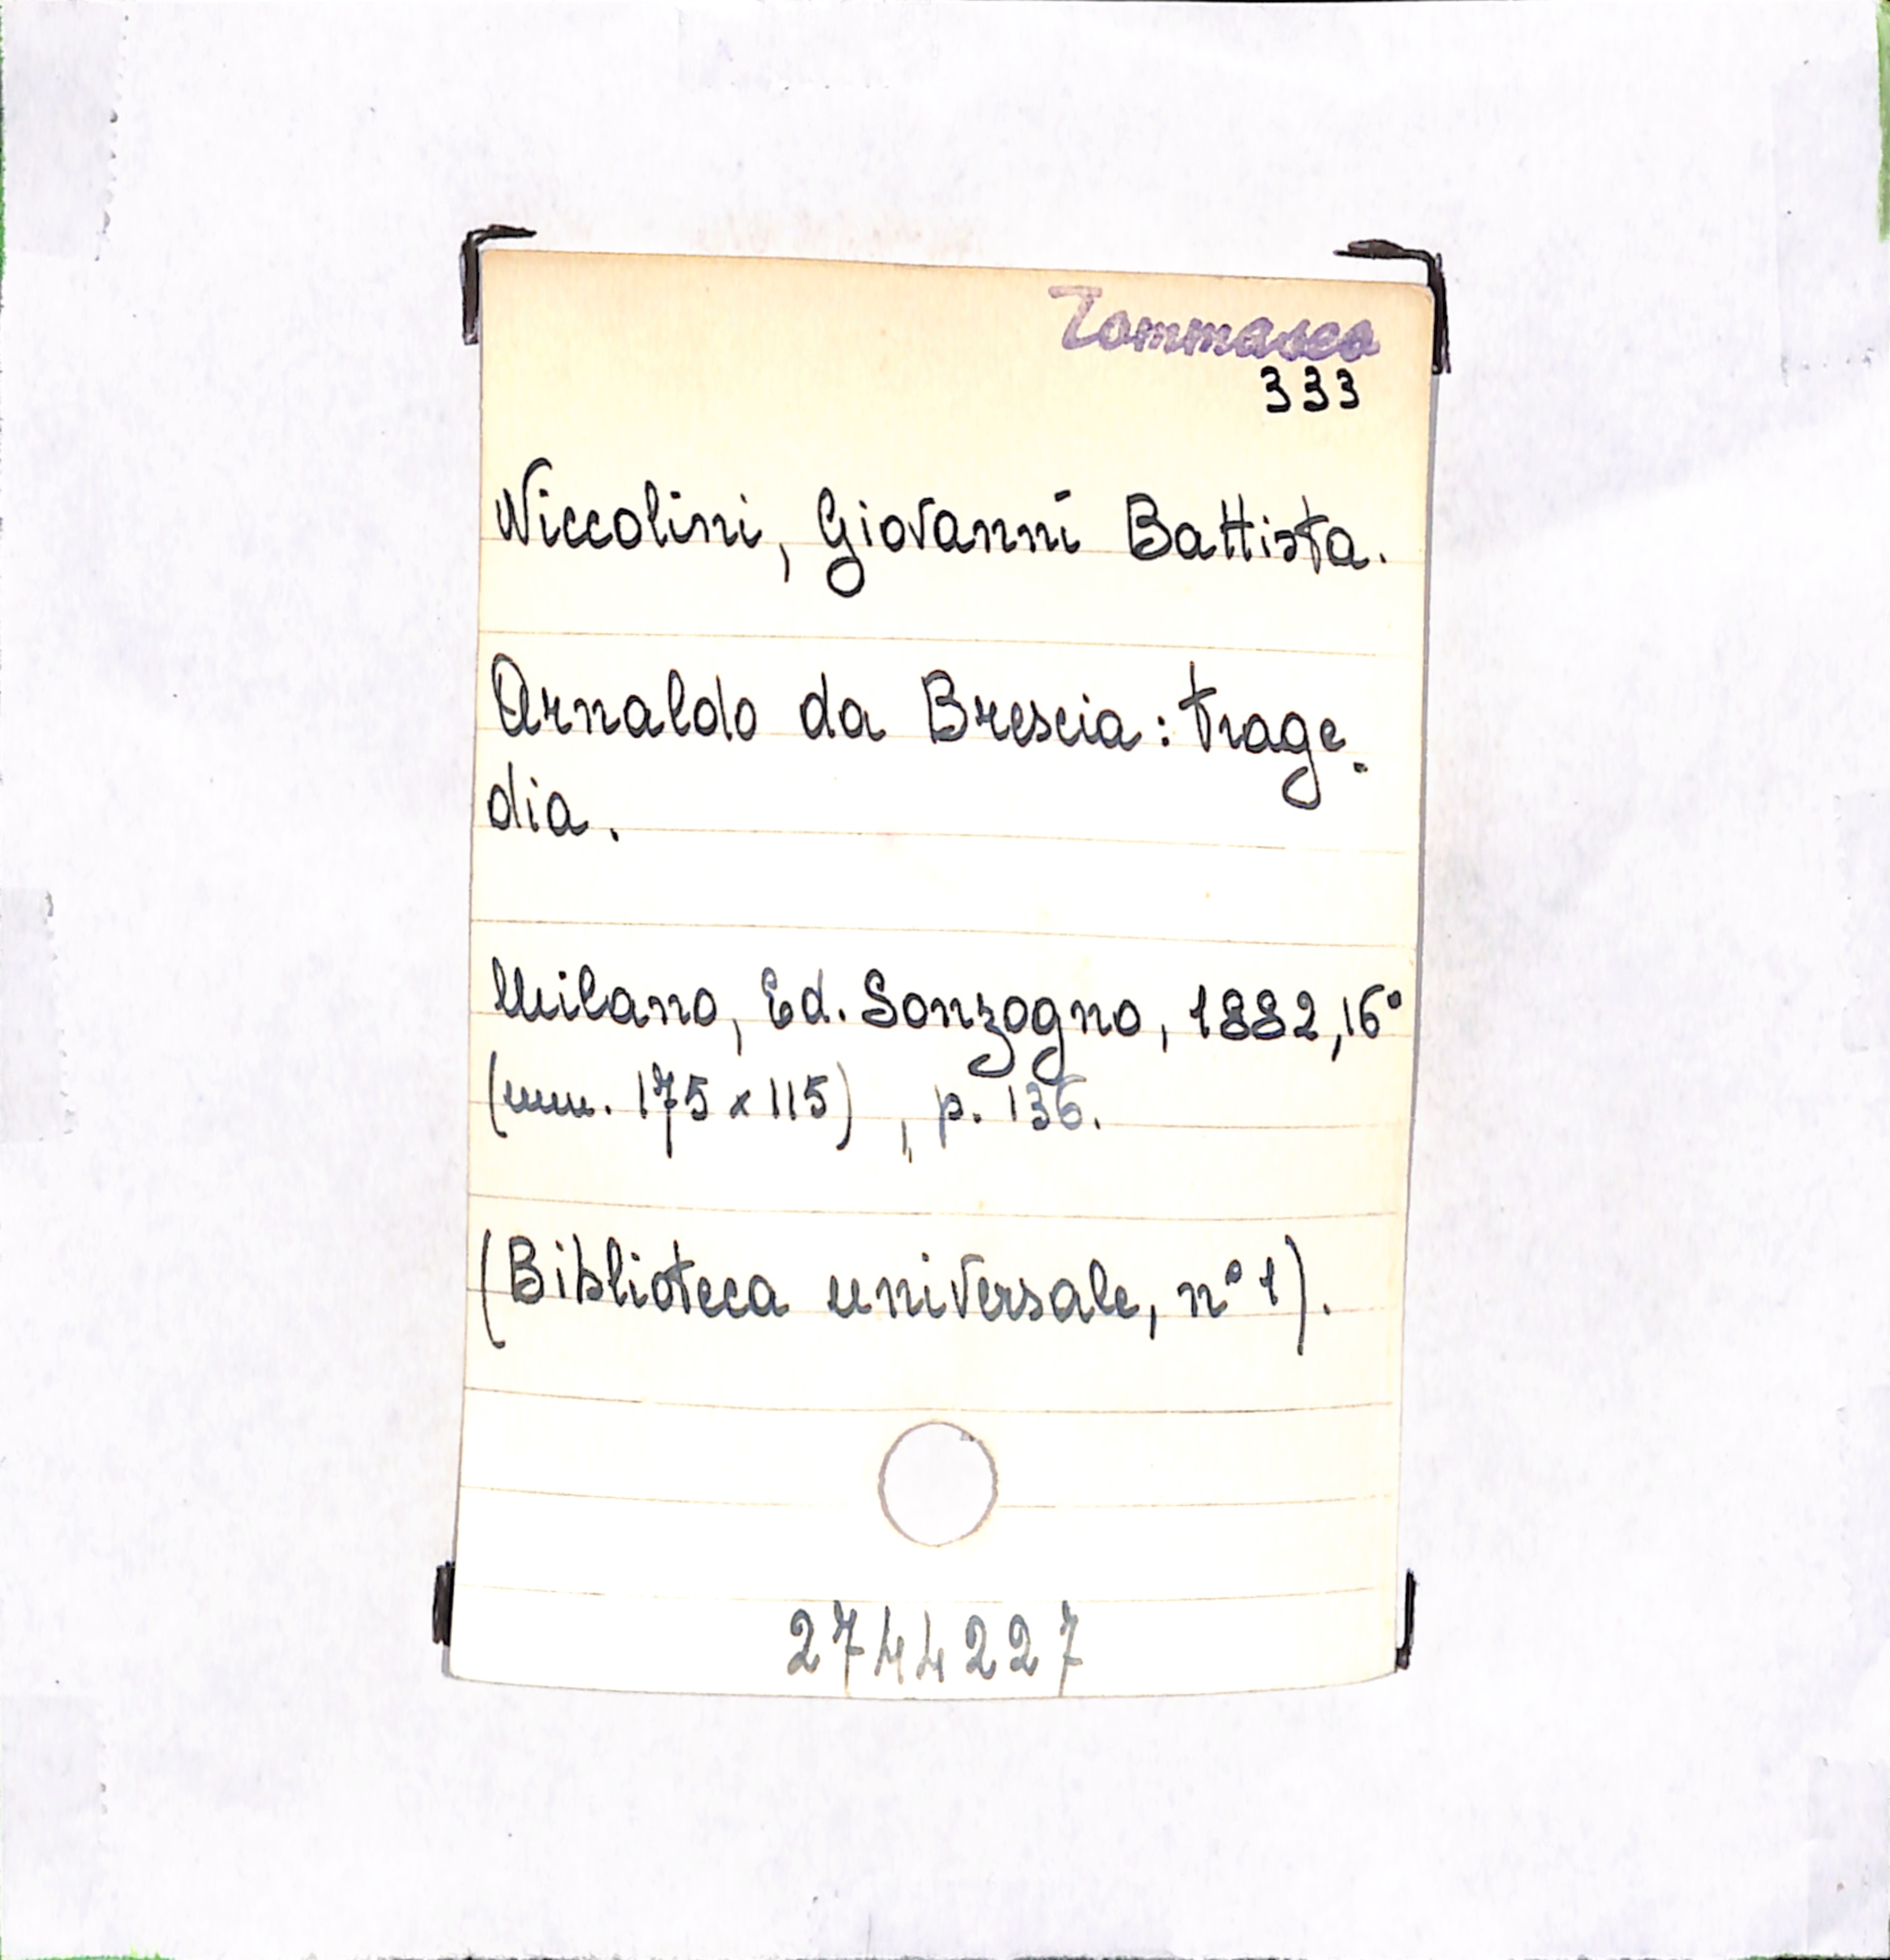 Tommaseo
333
Niccolini, Giovanni Battista.
Arnaldo da Brescia: trage-
dia.
Milano, Ed. Sonzogno, 1882, 16°
(mm. 175 x 115), p. 136.
(Biblioteca universale, n° 1).
2744227